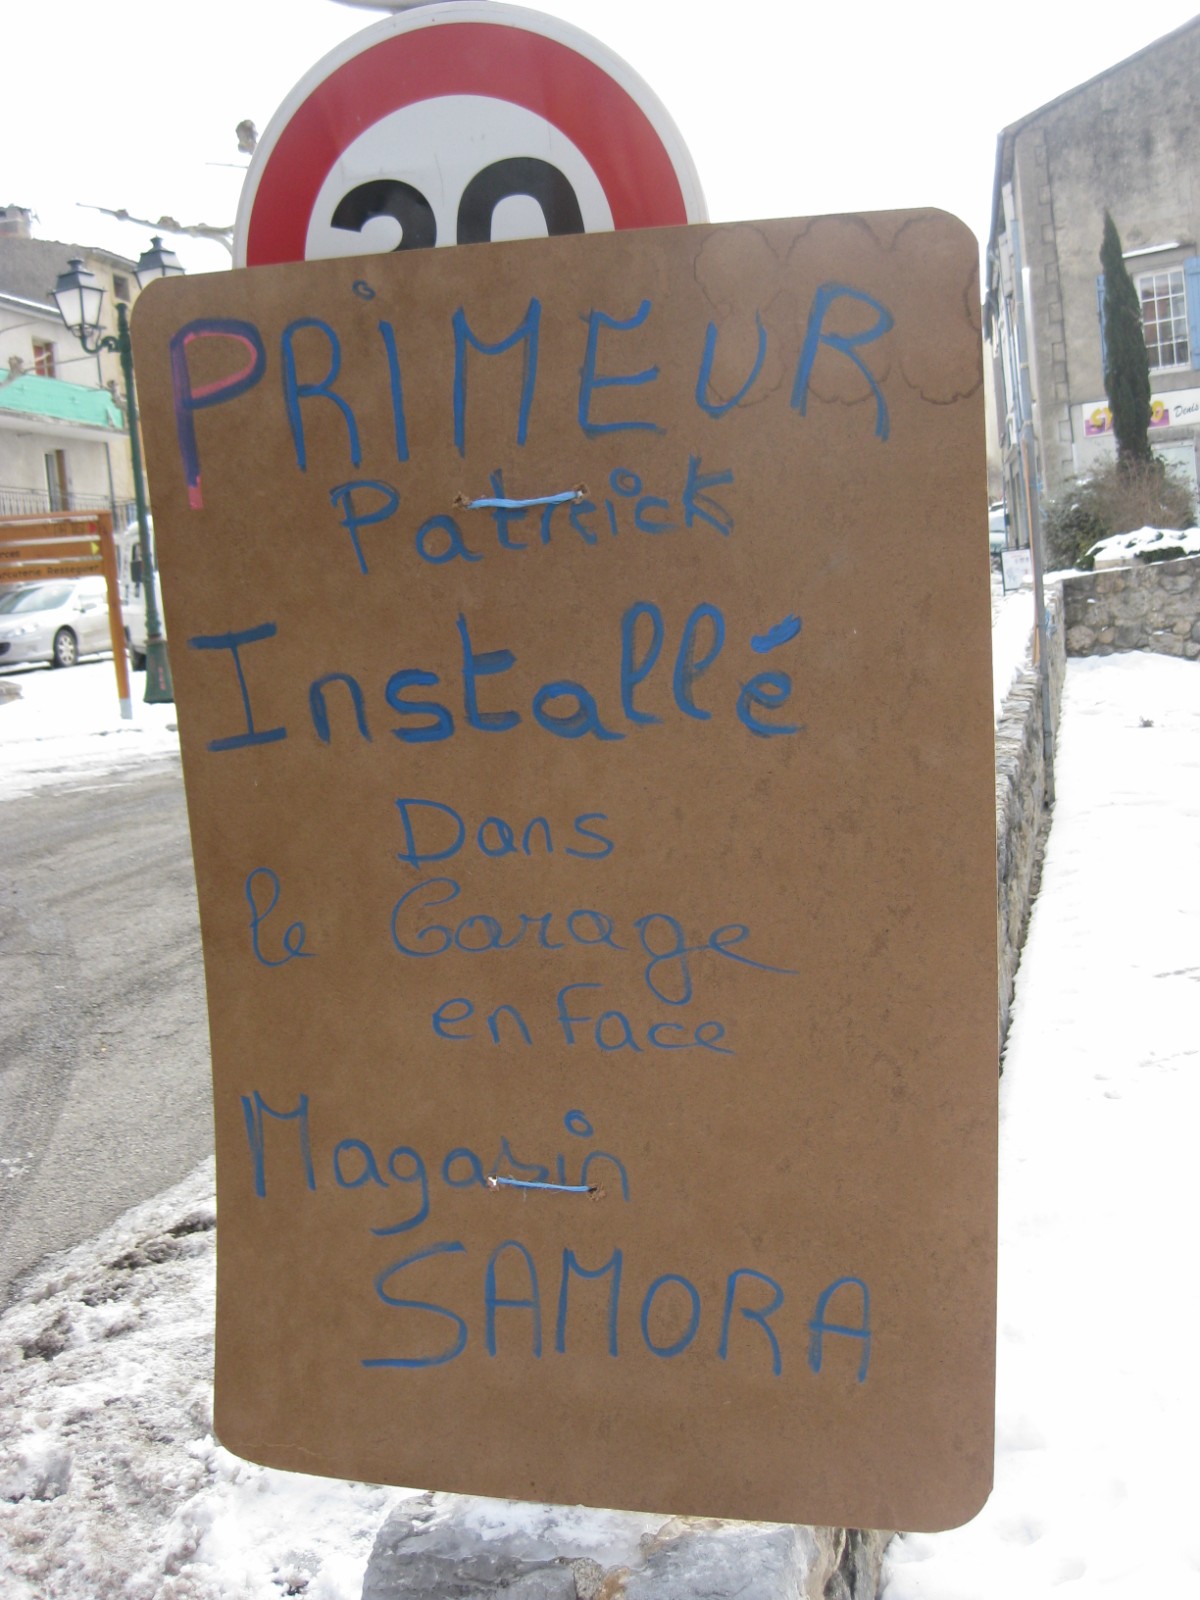 PRiMEUR
Patrick
Installé
Dans
le Garage
en Face
Magasin
SAMORA
Denis